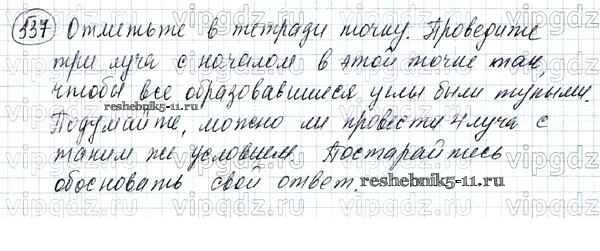 537 Отметьте в тетради точку. Проведите
три луча с началом в этой точке так,
чтобы все образовавшиеся углы были тупыми.
reshebnik5-11.ru
Подумайте, можно ли провести 4 луча с
таким же условием. Постарайтесь
обосновать свой ответ.
reshebnik5-11.ru